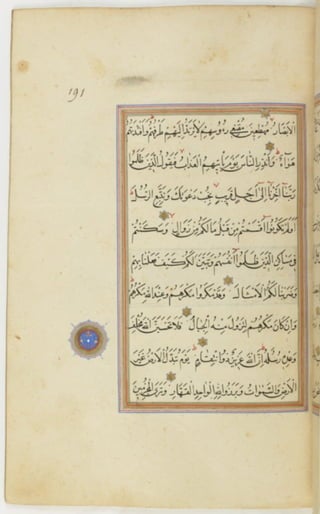 191
الْأَبْصَارُ مُهْطِعِينَ مُقْنِعِي رُءُوسِهِمْ لَا يَرْتَدُّ إِلَيْهِمْ طَرْفُهُمْ وَأَفْئِدَتُهُمْ
هَوَاءٌ وَأَنْذِرِ النَّاسَ يَوْمَ يَأْتِيهِمُ الْعَذَابُ فَيَقُولُ الَّذِينَ ظَلَمُوا
رَبَّنَا أَخِّرْنَا إِلَى أَجَلٍ قَرِيبٍ نُجِبْ دَعْوَتَكَ وَنَتَّبِعِ الرُّسُلَ
أَوَلَمْ تَكُونُوا أَقْسَمْتُمْ مِنْ قَبْلُ مَا لَكُمْ مِنْ زَوَالٍ وَسَكَنْتُمْ
فِي مَسَاكِنِ الَّذِينَ ظَلَمُوا أَنْفُسَهُمْ وَتَبَيَّنَ لَكُمْ كَيْفَ فَعَلْنَا بِهِمْ
وَضَرَبْنَا لَكُمُ الْأَمْثَالَ وَقَدْ مَكَرُوا مَكْرَهُمْ وَعِنْدَ اللَّهِ مَكْرُهُمْ
وَإِنْ كَانَ مَكْرُهُمْ لِتَزُولَ مِنْهُ الْجِبَالُ فَلَا تَحْسَبَنَّ اللَّهَ مُخْلِفَ
وَعْدِهِ رُسُلَهُ إِنَّ اللَّهَ عَزِيزٌ ذُو انْتِقَامٍ يَوْمَ تُبَدَّلُ الْأَرْضُ غَيْرَ
الْأَرْضِ وَالسَّمَوَاتُ وَبَرَزُوا لِلَّهِ الْوَاحِدِ الْقَهَّارِ وَتَرَى الْمُجْرِمِينَ